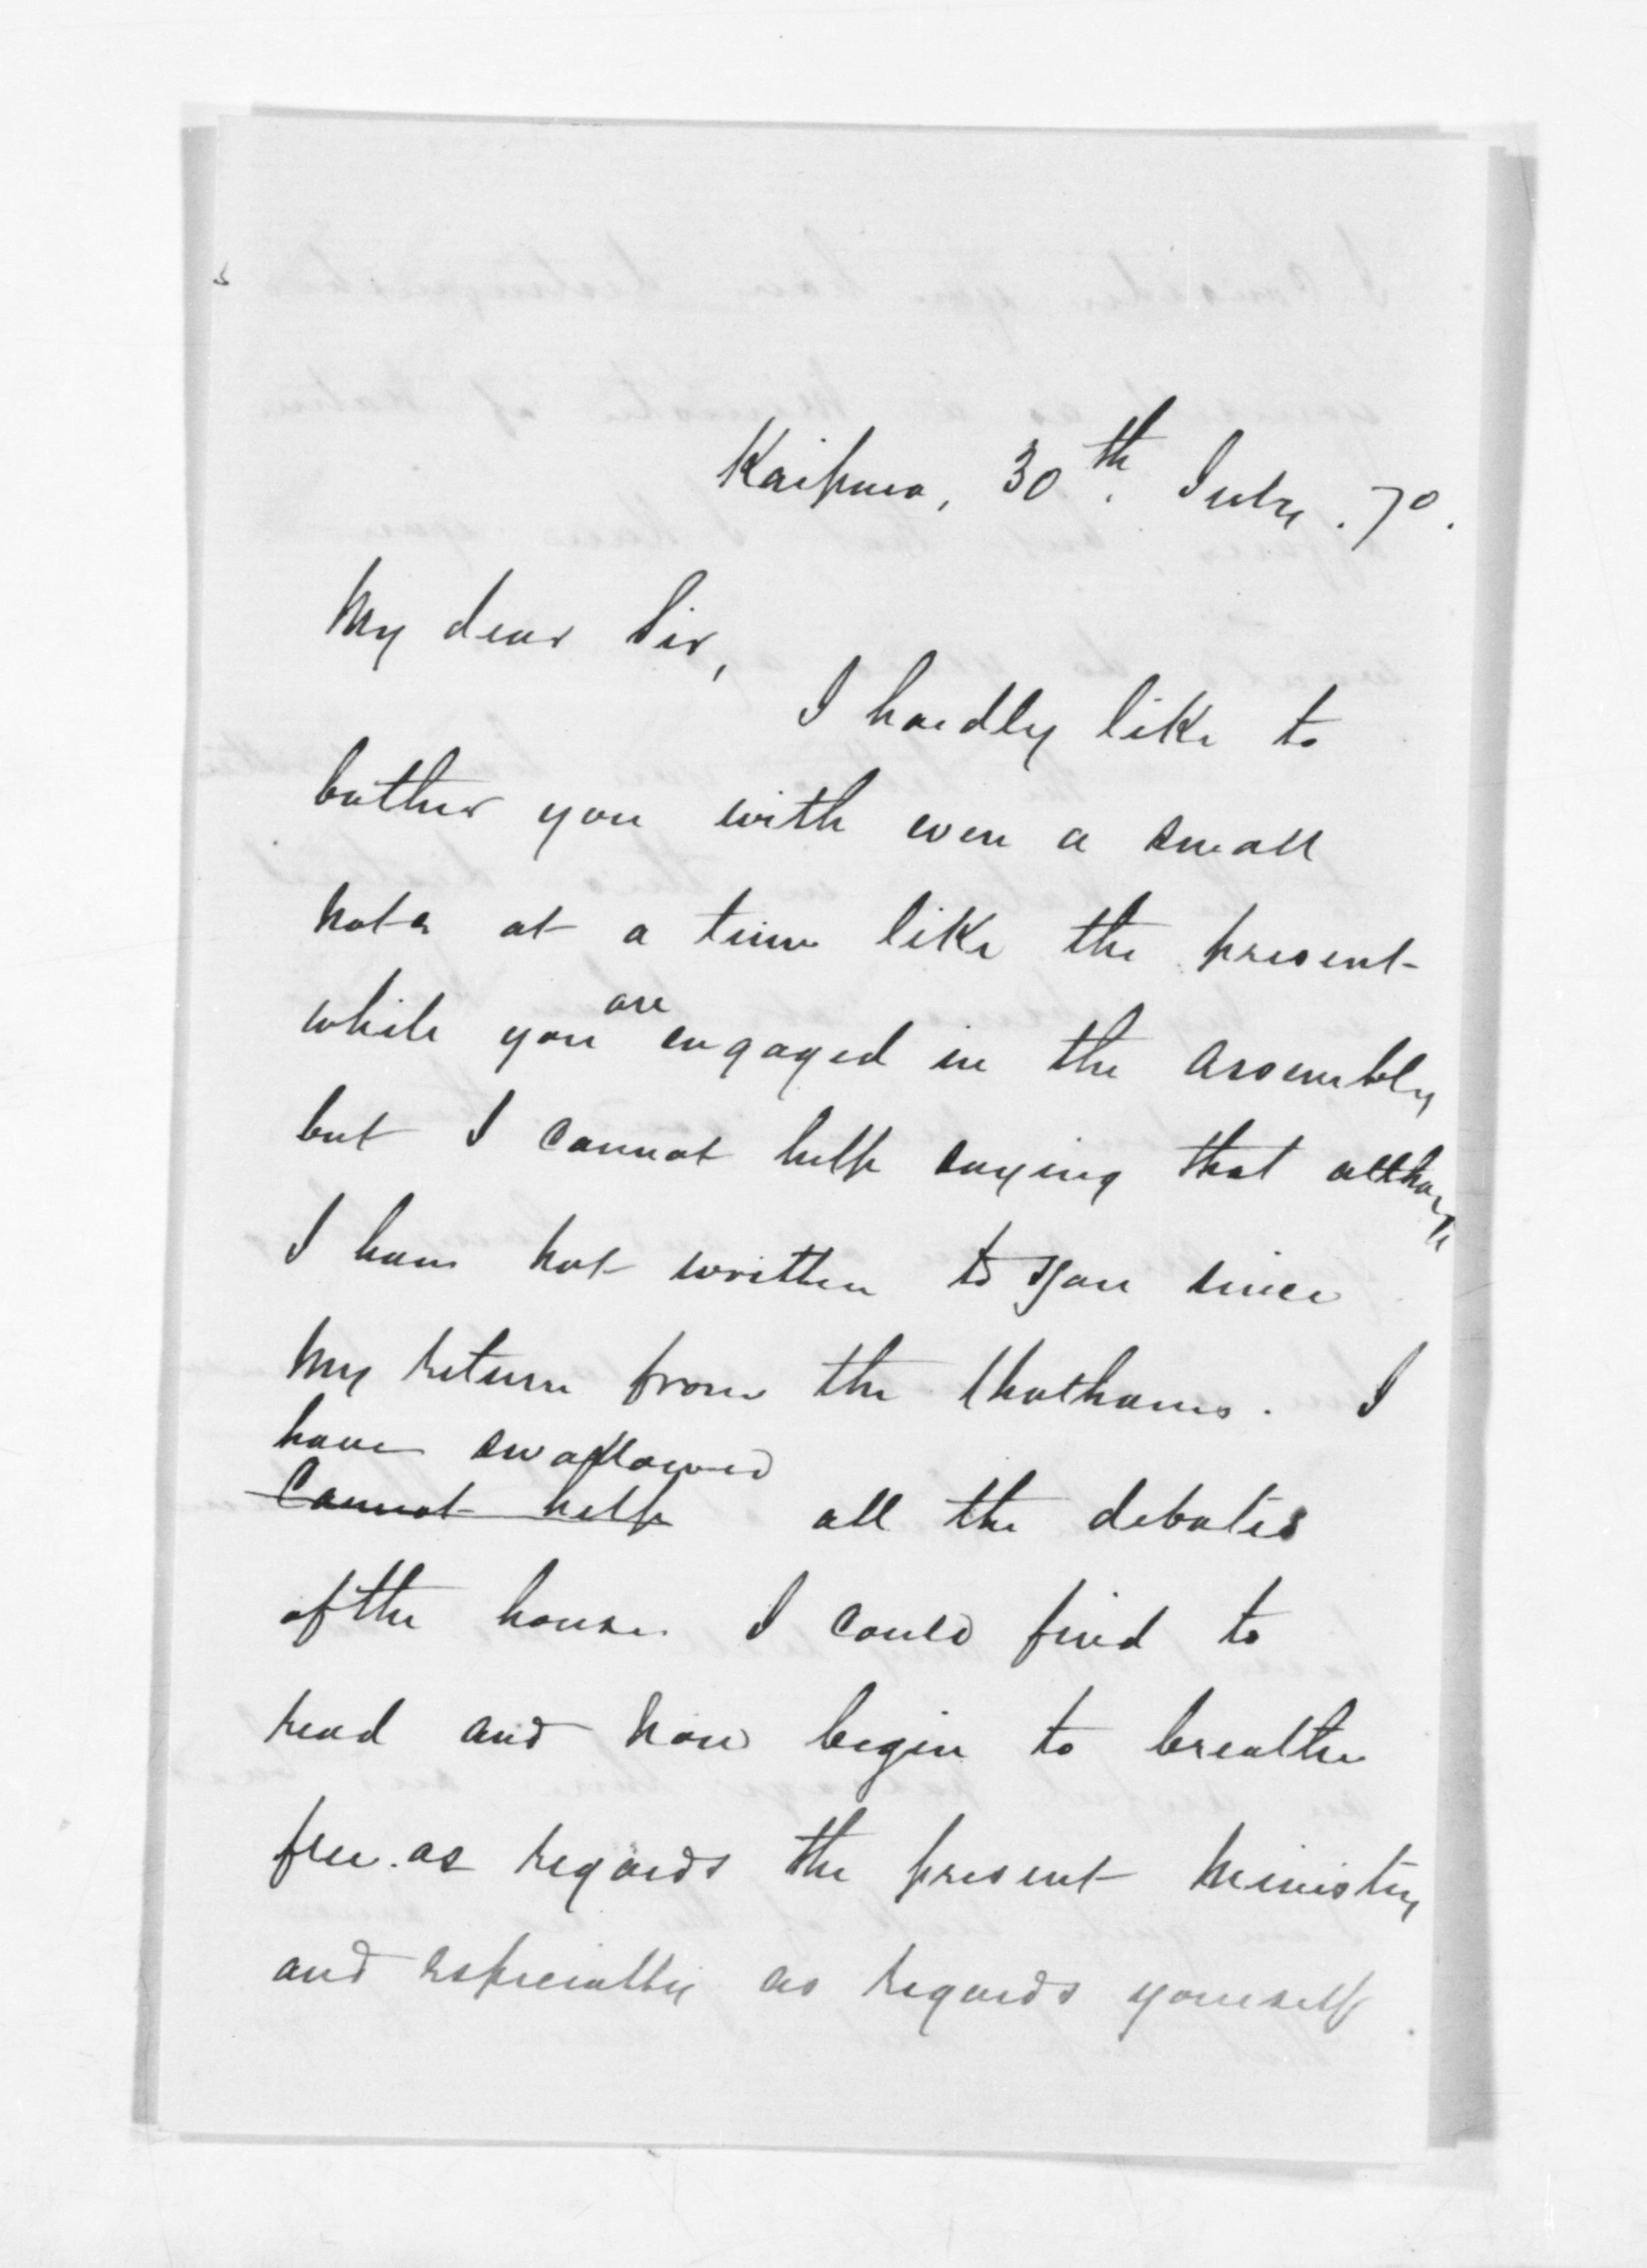 Kaipara, 30th. July. 70.
My dear Sir,
I hardly like to
bother you with even a small
note at a time like the present
while you are engaged in the Assembly
but I cannot help saying that although
I have not written to you since
my return from the Chathams. I
have swallowed
cannot help all the debates
of the house I could find to
read and now begin to breathe
free. as regards the present ministry
and especially as regards yourself